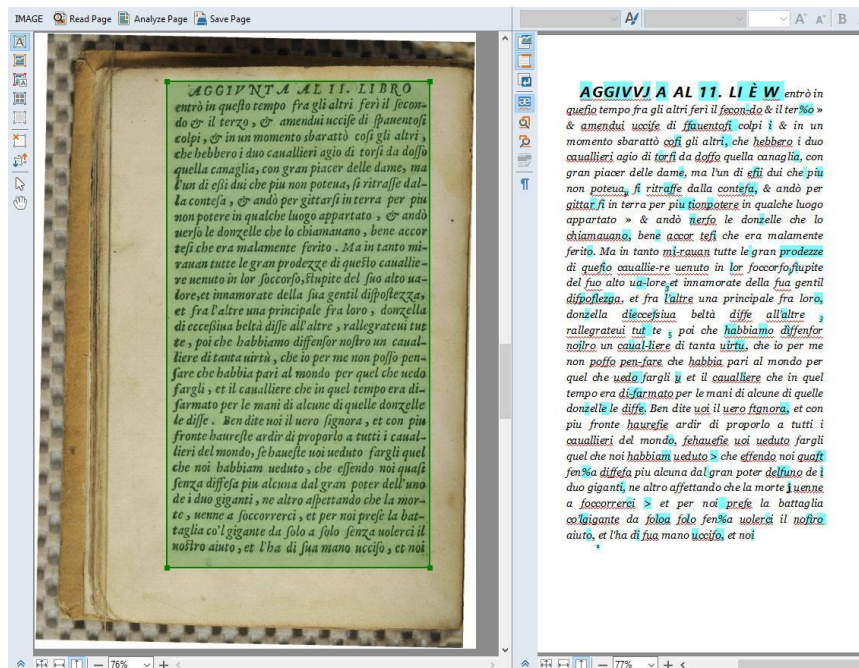 IMAGE Read Page Analyze Page Save Page
AGGIVNTA AL II. LIBRO
entrò in questo tempo fra gli altri ferì il secon-
do & il terzo, & amendui uccise di spauentosi
colpi, & in un momento sbarattò cosi gli altri,
che hebbero i duo cauallieri agio di torsi da dosso
quella canaglia, con gran piacer delle dame, ma
l'un di eßi dui che piu non poteua, si ritrasse dal-
la contesa, & andò per gittarsi in terra per piu
non potere in qualche luogo appartato, & andò
uerso le donzelle che lo chiamauano, bene accor
tesi che era malamente ferito. Ma in tanto mi-
rauan tutte le gran prodezze di questo cauallie-
re uenuto in lor soccorso, stupite del suo alto ua-
lore, et innamorate della sua gentil dispostezza,
et fra l'altre una principale fra loro, donzella
di ecceßiua beltà disse all'altre, rallegrateui tut
te, poi che habbiamo diffensor nostro un caual-
liere di tanta uirtù, che io per me non posso pen-
sare che habbia pari al mondo per quel che uedo
fargli, et il caualliere che in quel tempo era di-
sarmato per le mani di alcune di quelle donzelle
le disse. Ben dite uoi il uero signora, et con piu
fronte haureste ardir di proporlo a tutti i caual-
lieri del mondo, se haueste uoi ueduto fargli quel
che noi habbiam ueduto, che essendo noi quasi
senza diffesa piu alcuna dal gran poter dell'uno
de i duo giganti, ne altro aspettando che la mor-
te, uenne a soccorrerci, et per noi prese la bat-
taglia co'l gigante da solo a solo senza uolerci il
nostro aiuto, et l'ha di sua mano ucciso, et noi
76%
AGGIVVJ A AL 11. LI È W entrò in
questo tempo fra gli altri ferì il fecon-do & il ter%o »
& amendui uccife di ffauentofi colpi i & in un
momento sbarattò cofi gli altri, che hebbero i duo
cauallieri agio di torfi da doffo quella canaglia, con
gran piacer delle dame, ma l'un di efii dui che piu
non poteua, fi ritraffe dalla contefa, & andò per
gittar fi in terra per piu tionpotere in qualche luogo
appartato » & andò nerfo le donzelle che lo
chiamauano, bene accor tefi che era malamente
ferito. Ma in tanto mi-rauan tutte le gran prodezze
di quefio cauallie-re uenuto in lor foccorfo,fiupite
del fuo alto ua-lore,et innamorate della fua gentil
difpoflezga, et fra l'altre una principale fra loro,
donzella dieccefsiua beltà diffe all'altre ,
rallegrateui tut te , poi che habbiamo diffenfor
nojlro un caual-liere di tanta uirtu, che io per me
non poffo pen-fare che habbia pari al mondo per
quel che uedo fargli y et il caualliere che in quel
tempo era di-farmato per le mani di alcune di quelle
donzelle le diffe. Ben dite uoi il uero ftgnora, et con
piu fronte haurefie ardir di proporlo a tutti i
cauallieri del mondo, fehauefie uoi ueduto fargli
quel che noi habbiam ueduto > che effendo noi quaft
fen%a diffefa piu alcuna dal gran poter delfuno de i
duo giganti, ne altro affettando che la morte j uenne
a foccorrerci > et per noi prefe la battaglia
co'lgigante da foloa folo fen%a uolerci il nofiro
aiuto, et l'ha di fua mano uccifo, et noi
77%